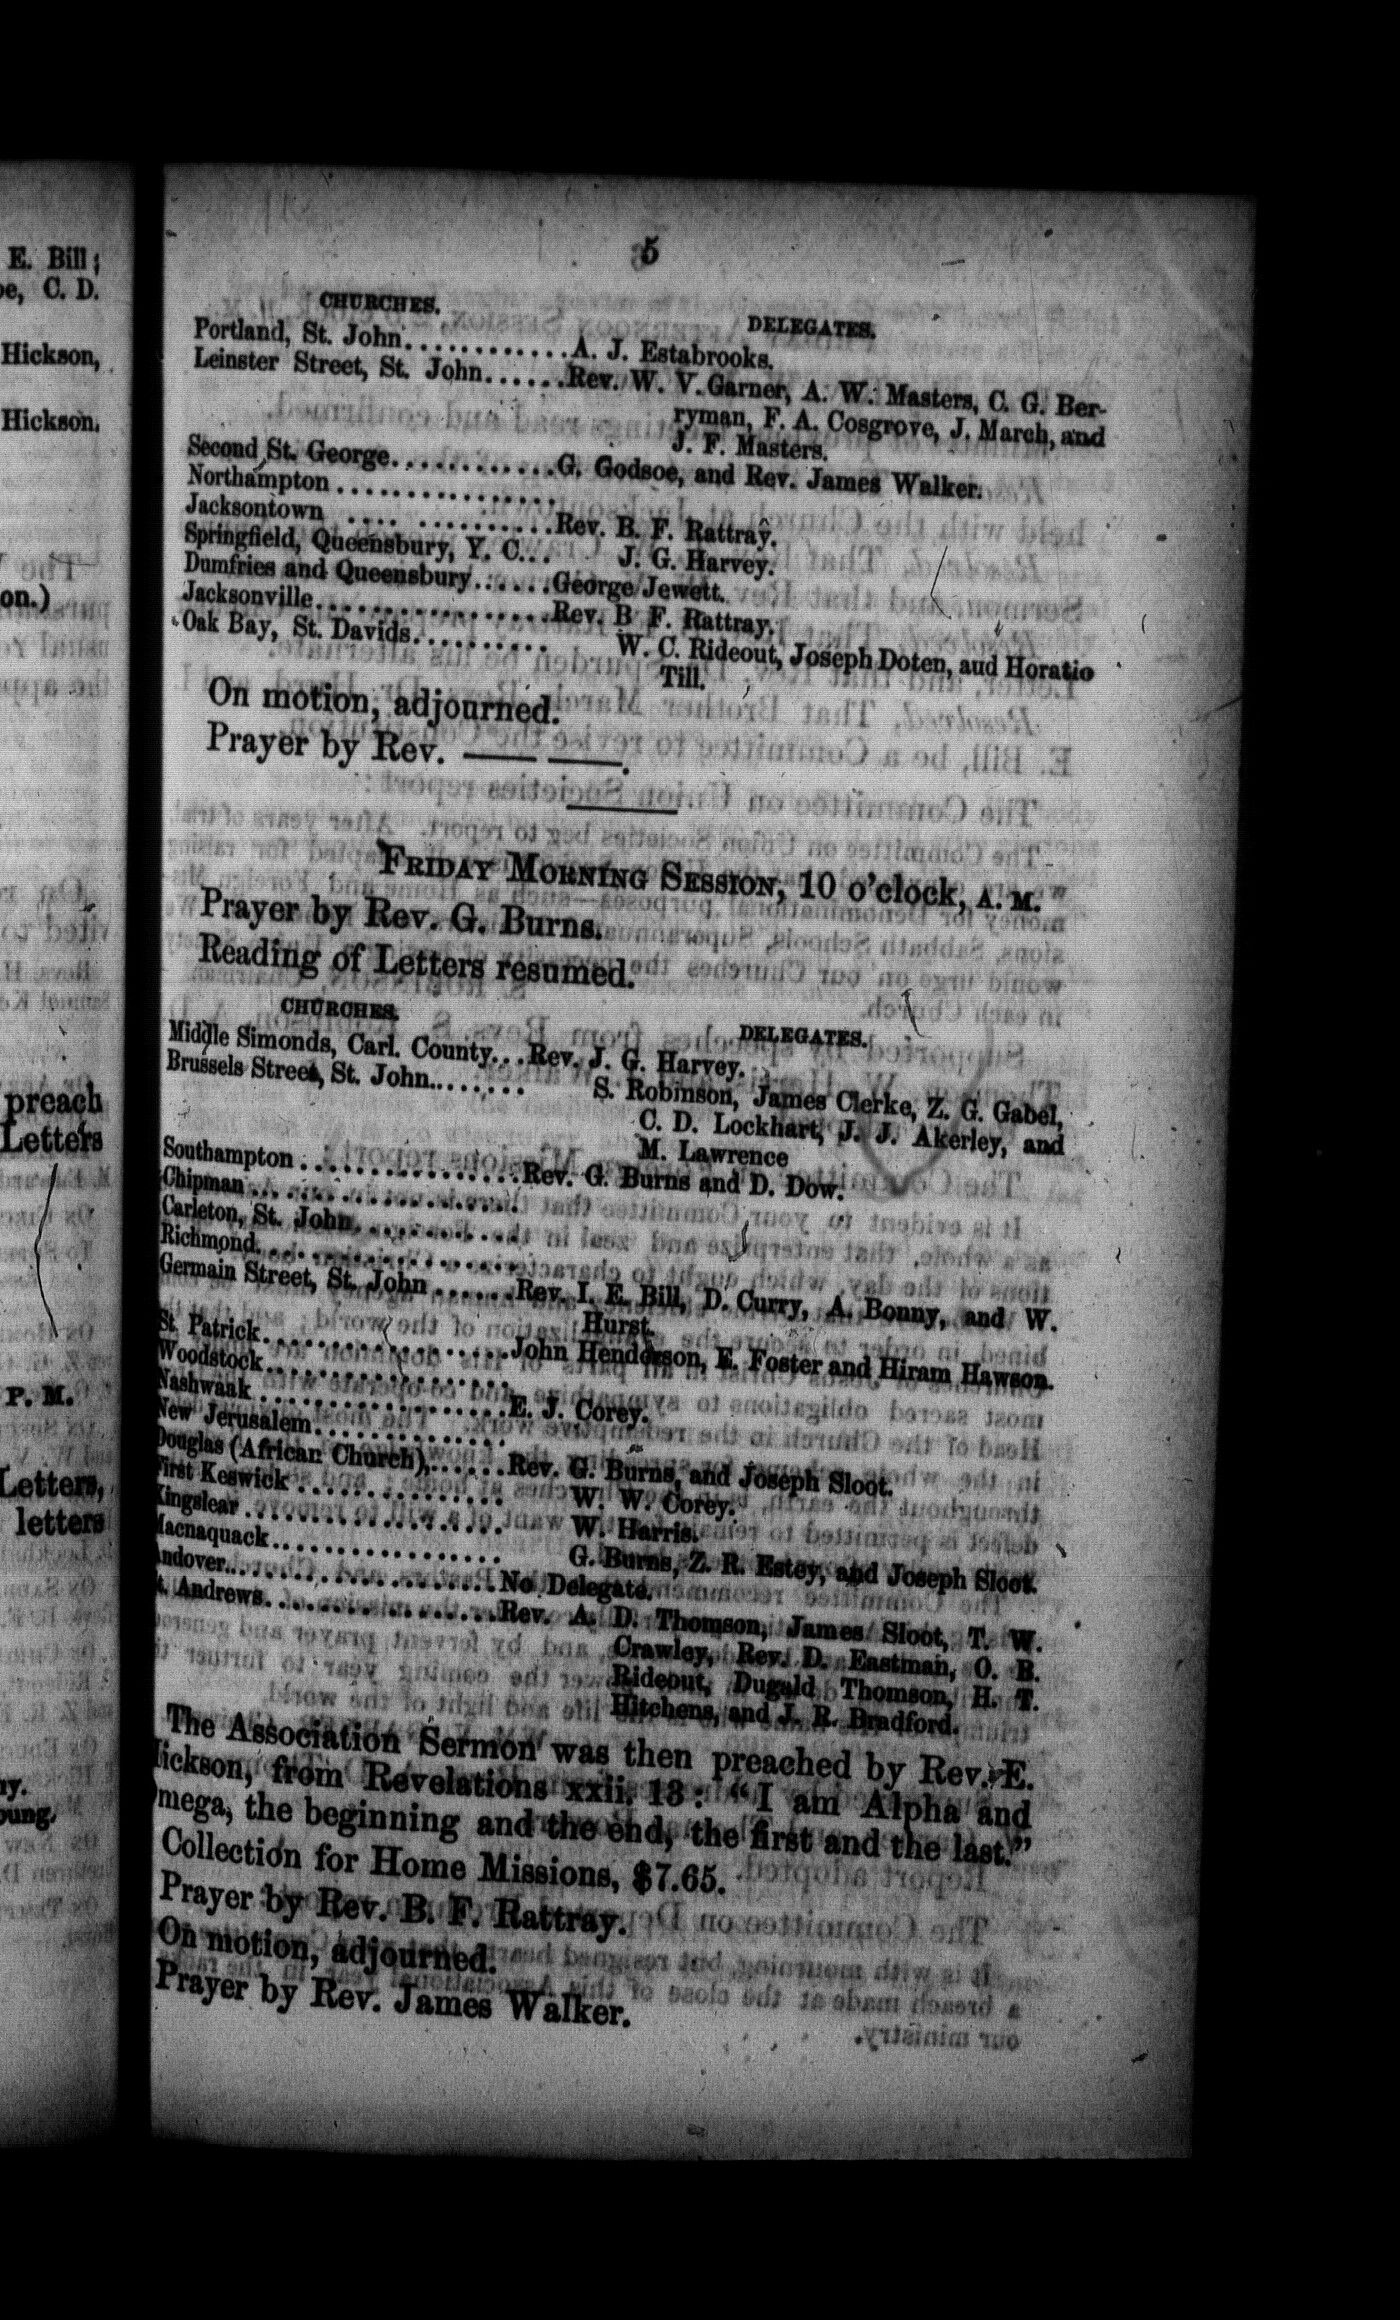 5
CHURCHES. DELEGATES.
Portland, St. John............A. J. Estabrooks.
Leinster Street, St. John......Rev. W. V. Garner, A. W. Masters, C. G. Ber-
ryman, F. A. Cosgrove, J. March, and
J. F. Masters.
Second St. George............G. Godsoe, and Rev. James Walker.
Northampton ................
Jacksontown .... ..........Rev. B. F. Rattray.
Springfield, Queensbury, Y. C... J. G. Harvey.
Dumfries and Queensbury......George Jewett.
Jacksonville.................Rev. B F. Rattray.
Oak Bay, St. Davids.......... W. C. Rideout, Joseph Doten, aud Horatio
Till.
On motion, adjourned.
Prayer by Rev. —— ——.
FRIDAY MORNING SESSION, 10 o'clock, A. M.
Prayer by Rev. G. Burns.
Reading of Letters resumed.
CHURCHES. DELEGATES.
Middle Simonds, Carl. County...Rev. J. G. Harvey.
Brussels Street, St. John........ S. Robinson, James Clerke, Z. G. Gabel,
C. D. Lockhart, J. J. Akerley, and
M. Lawrence
Southampton ................Rev. G. Burns and D. Dow.
Chipman....................
Carleton, St. John............
Richmond...................
Germain Street, St. John ......Rev. I. E. Bill, D. Curry, A. Bonny, and W.
Hurst.
St. Patrick..................John Henderson, E. Foster and Hiram Hawson.
Woodstock..................
Nashwaak ..................E. J. Corey.
New Jerusalem..............
Douglas (African Church),......Rev. G. Burns, and Joseph Sloot.
First Keswick ............... W. W. Corey.
Kingslear ................... W. Harris.
Macnaquack................. G. Burns, Z. R. Estey, and Joseph Sloot.
Andover....................No Delegate.
St. Andrews.................Rev. A. D. Thomson, James Sloot, T. W.
Crawley, Rev. D. Eastman, O. B.
Rideout, Dugald Thomson, H. T.
Hitchens, and J. R. Bradford.
The Association Sermon was then preached by Rev. E.
Hickson, from Revelations xxii. 13: "I am Alpha and
Omega, the beginning and the end, the first and the last."
Collection for Home Missions, $7.65.
Prayer by Rev. B. F. Rattray.
On motion, adjourned.
Prayer by Rev. James Walker.
E. Bill;
C. D.
Hickson,
Hickson.
on.)
preach
Letters
P. M.
Letters,
letters